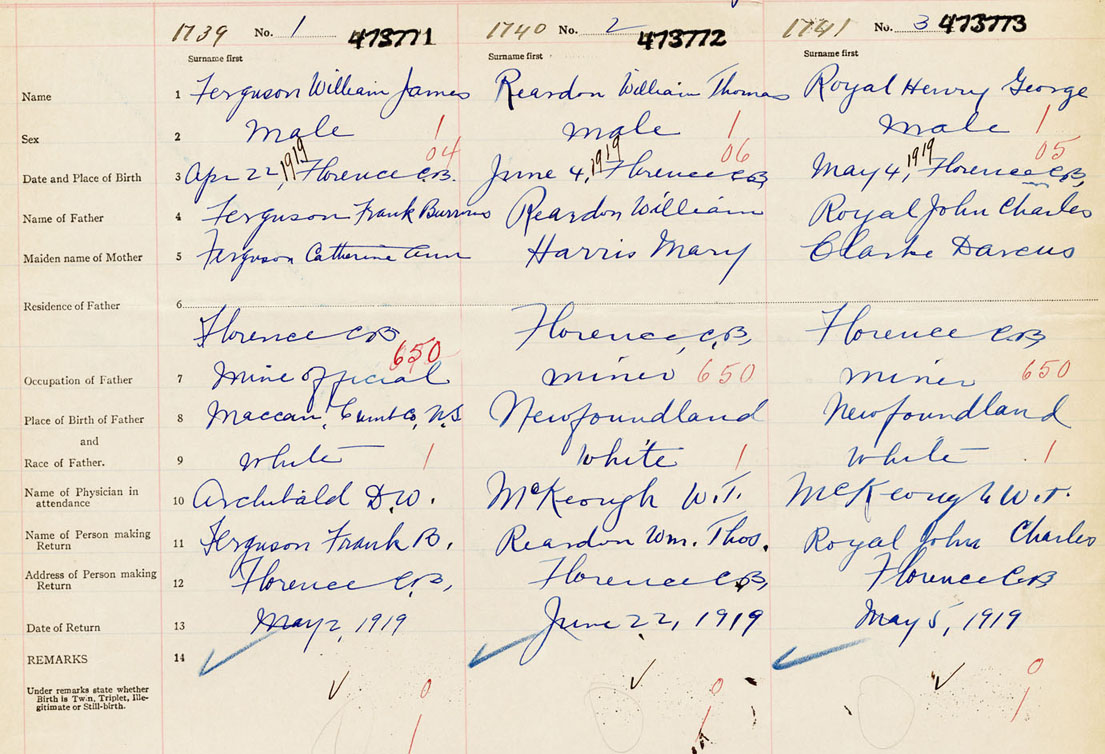 1739 No. 1 473771 1740 No. 2 473772 1741 No. 3 473773
Surname first Surname first Surname first
Name 1 Ferguson William James Reardon William Thomas Royal Henry George
Sex 2 male 1 male 1 male 1
04 06 05
Date and Place of Birth 3 Apr 22, 1919 Florence C.B. June 4, 1919 Florence C.B. May 4, 1919 Florence C.B.
Name of Father 4 Ferguson Frank Burrows Reardon William Royal John Charles
Maiden name of Mother 5 Ferguson Catherine Ann Harris Mary Clarke Darcus
Residence of Father 6
Florence C.B. Florence, C.B. Florence C.B.
650
Occupation of Father 7 Mine official miner 650 miner 650
Place of Birth of Father 8 Maccan, Cumb Co, N.S. Newfoundland Newfoundland
and
Race of Father. 9 White 1 White 1 White 1
Name of Physician in
attendance 10 Archibald D.W. McKeough W.T. McKeough W.T.
Name of Person making
Return 11 Ferguson Frank B. Reardon Wm. Thos. Royal John Charles
Address of Person making
Return 12 Florence C.B. Florence C.B. Florence C.B
Date of Return 13 May 2, 1919 June 22, 1919 May 5, 1919
REMARKS 14
Under remarks state whether
Birth is Twin, Triplet, Ille-
gitimate or Still-birth.
0 0 0
1 1 1